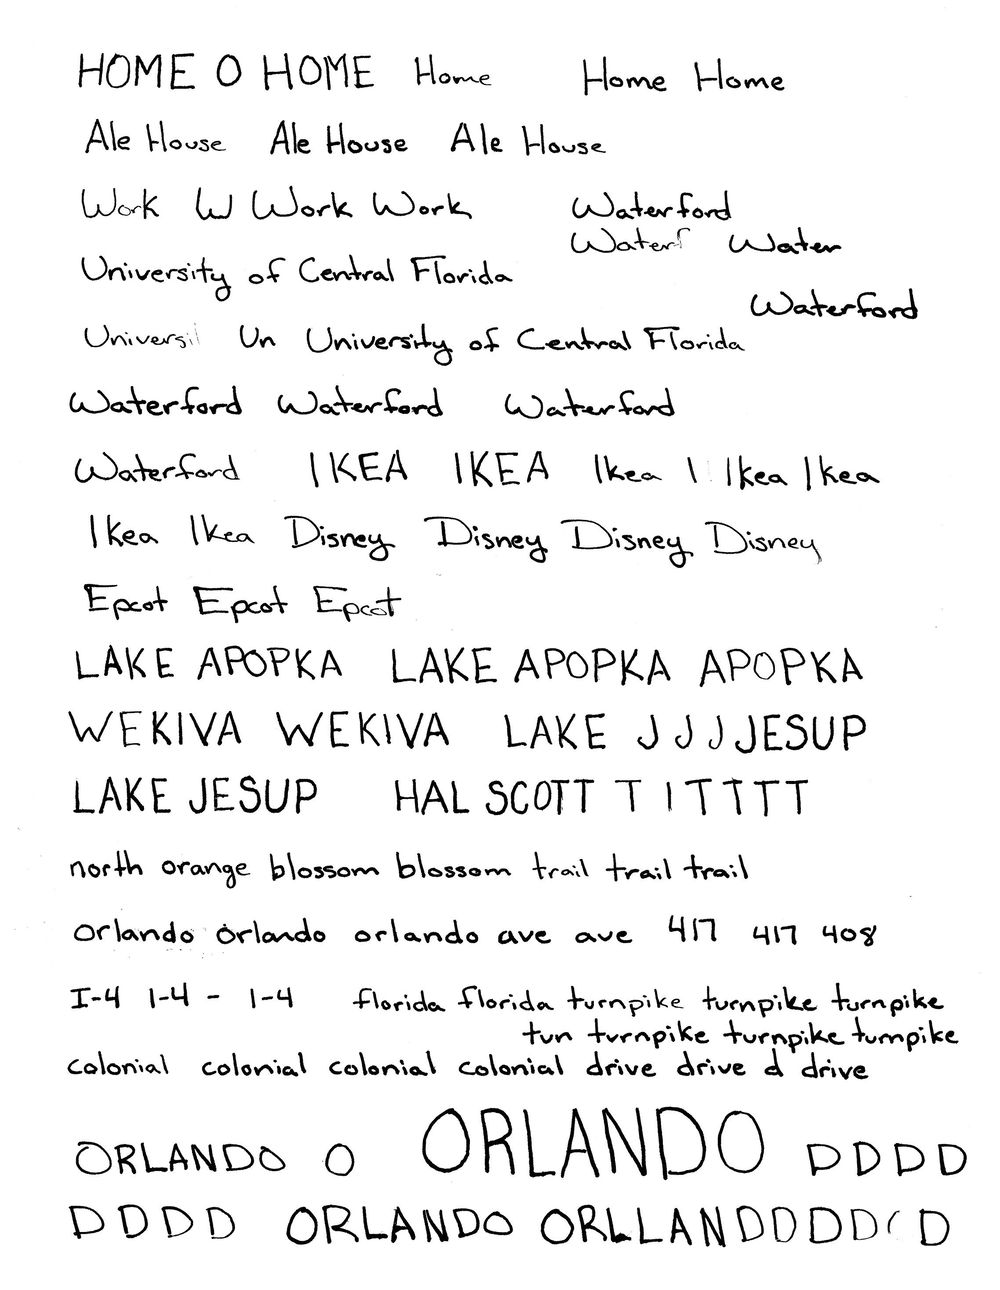 HOME O HOME Home Home Home
Ale House Ale House Ale House
Work W Work Work Waterford
Waterf Water
University of Central Florida
Waterford
Universi Un University of Central Florida
Waterford Waterford Waterford
Waterford IKEA IKEA Ikea I Ikea Ikea
Ikea Ikea Disney Disney Disney Disney
Epcot Epcot Epcot
LAKE APOPKA LAKE APOPKA APOPKA
WEKIVA WEKIVA LAKE J J J JESUP
LAKE JESUP HAL SCOTT T I T T T T
north orange blossom blossom trail trail trail
orlando orlando orlando ave ave 417 417 408
I-4 I-4 - I-4 florida florida turnpike turnpike turnpike
tun turnpike turnpike turnpike
colonial colonial colonial colonial drive drive d drive
ORLANDO O ORLANDO D D D D
D D D D ORLANDO ORLLANDDDDD( D